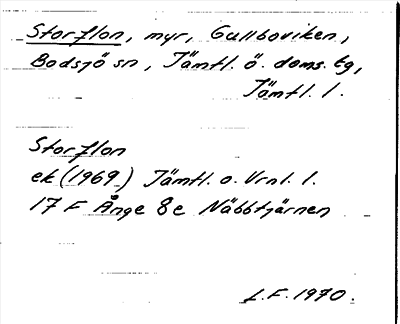 Storflon, myr, Gullboviken,
Bodsjö sn, Jämtl. ö. doms. tg,
Jämtl. l.
Storflon
ek (1969) Jämtl. o. Vrnl. l.
17 F Ånge 8c Näbbtjärnen
L.F. 1970.